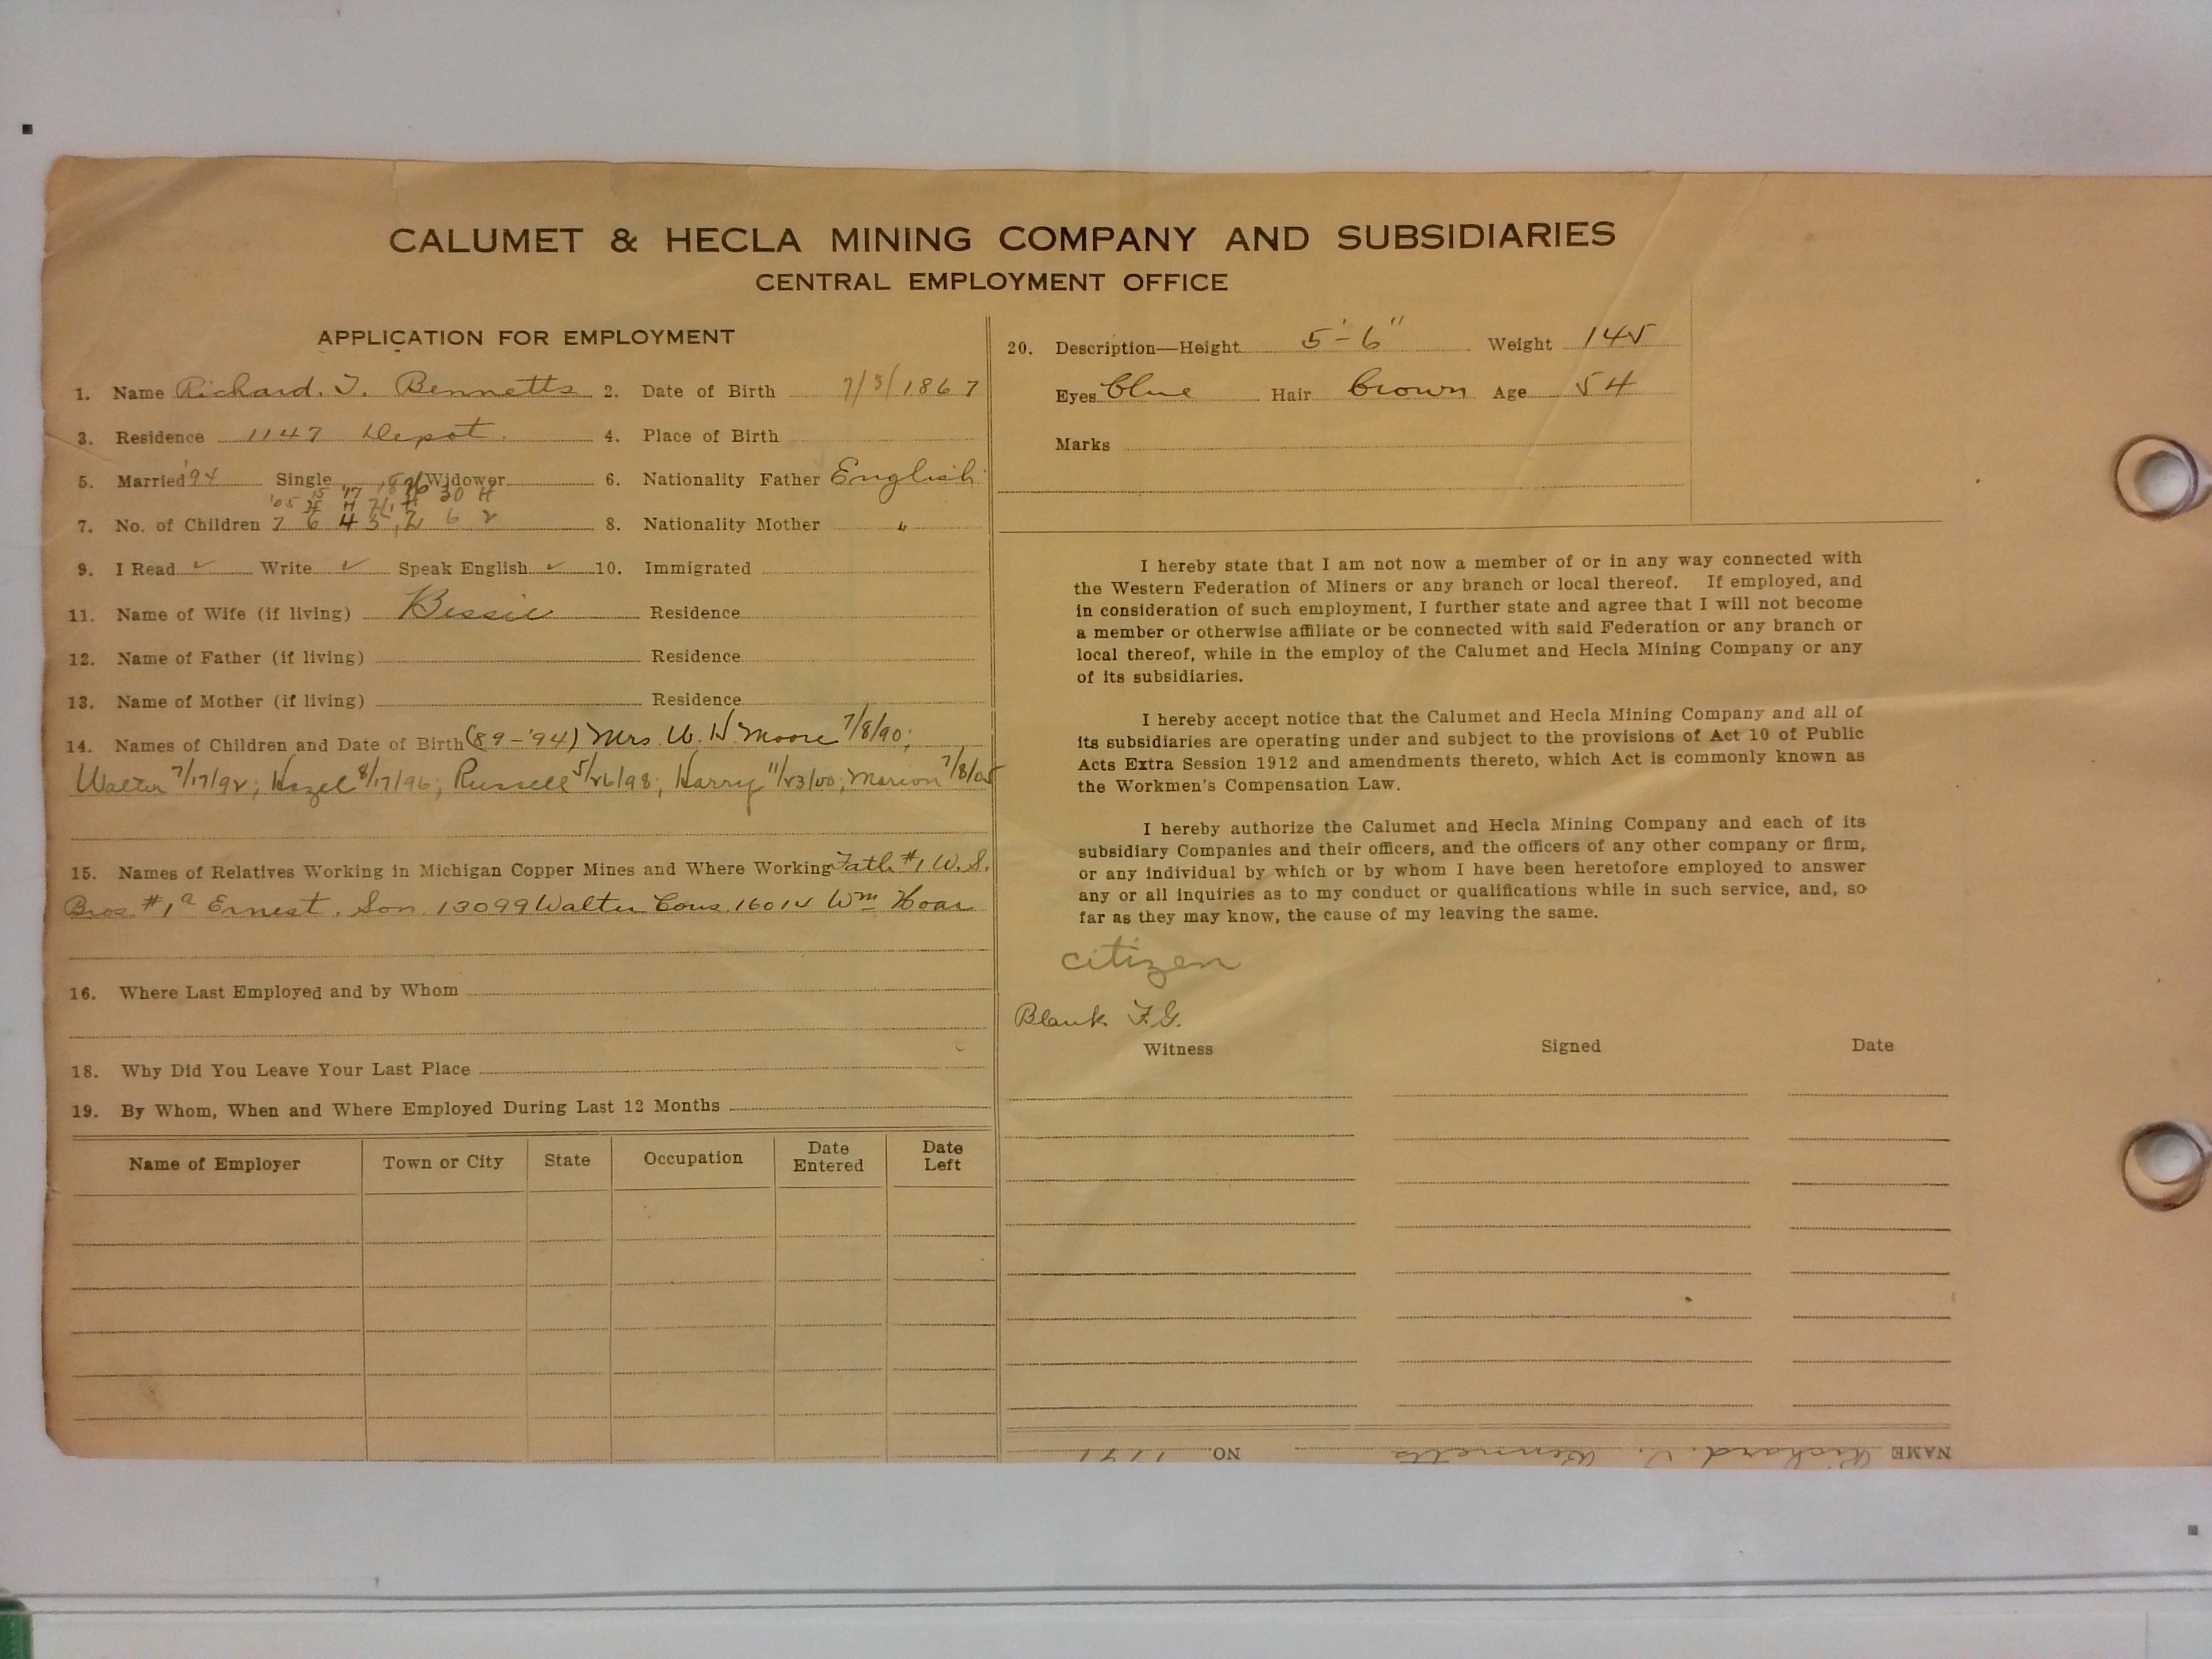 CALUMET & HECLA MINING COMPANY AND SUBSIDIARIES
CENTRAL EMPLOYMENT OFFICE
APPLICATION FOR EMPLOYMENT
1. Name Richard. T. Bennetts 2. Date of Birth 7/3/1867
3. Residence 1147 Depot. 4. Place of Birth
5. Married '94 Single Widower 6. Nationality Father English
'05 15 '17 30 H
7. No. of Children 7 6 4 5, 2 6 2 8. Nationality Mother "
9. I Read ✓ Write ✓ Speak English ✓ 10. Immigrated
11. Name of Wife (if living) Bessie Residence
12. Name of Father (if living) Residence
13. Name of Mother (if living) Residence
14. Names of Children and Date of Birth (89-'94) Mrs. W. H. Moore 7/8/90;
Walter 7/17/92; Hazel 8/17/96; Russell 5/26/98; Harry 11/23/00; Marion 7/8/05
15. Names of Relatives Working in Michigan Copper Mines and Where Working Fath. #1 W.S.
Bros. #1a Ernest. Son. 13099 Walter Cous. 16014 Wm Hoar
16. Where Last Employed and by Whom
18. Why Did You Leave Your Last Place
19. By Whom, When and Where Employed During Last 12 Months
Name of Employer Town or City State Occupation Date Entered Date Left
20. Description—Height 5'-6" Weight 145
Eyes blue Hair brown Age 54
Marks
I hereby state that I am not now a member of or in any way connected with
the Western Federation of Miners or any branch or local thereof. If employed, and
in consideration of such employment, I further state and agree that I will not become
a member or otherwise affiliate or be connected with said Federation or any branch or
local thereof, while in the employ of the Calumet and Hecla Mining Company or any
of its subsidiaries.
I hereby accept notice that the Calumet and Hecla Mining Company and all of
its subsidiaries are operating under and subject to the provisions of Act 10 of Public
Acts Extra Session 1912 and amendments thereto, which Act is commonly known as
the Workmen's Compensation Law.
I hereby authorize the Calumet and Hecla Mining Company and each of its
subsidiary Companies and their officers, and the officers of any other company or firm,
or any individual by which or by whom I have been heretofore employed to answer
any or all inquiries as to my conduct or qualifications while in such service, and, so
far as they may know, the cause of my leaving the same.
citizen
Blank F.G.
Witness Signed Date
NAME Richard. T. Bennetts NO.